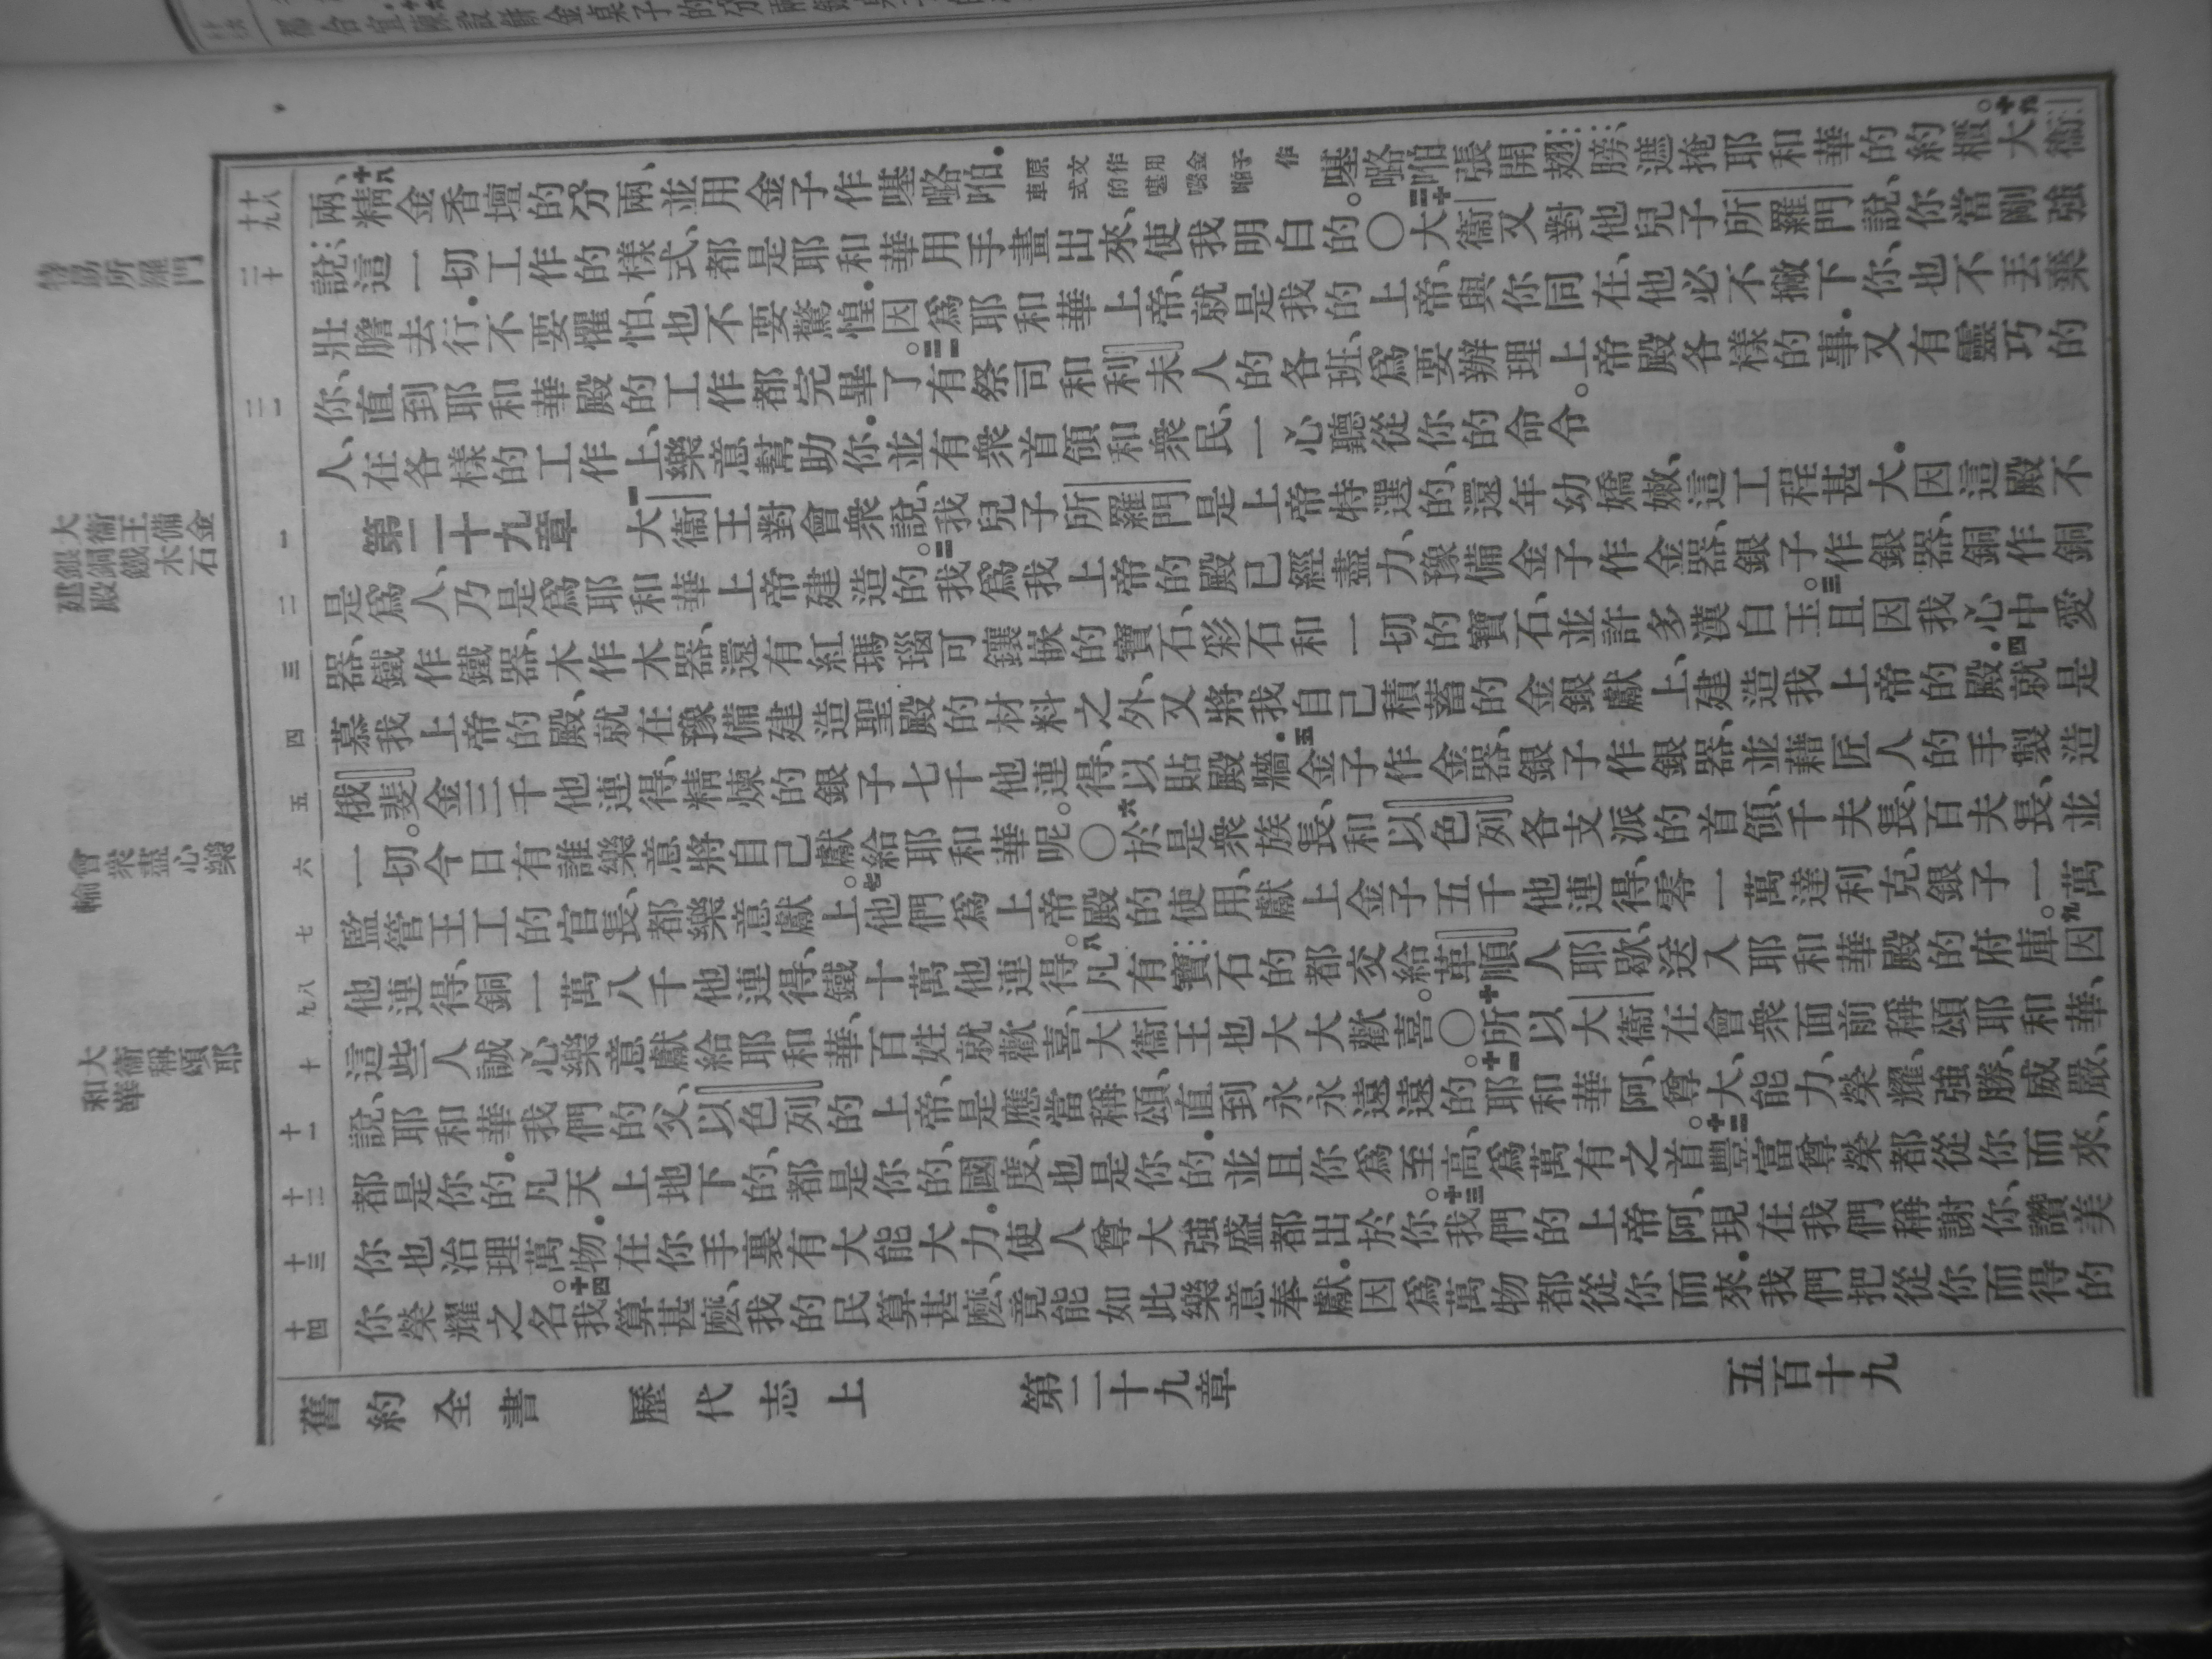 兩、十八精金香壇的分兩、並用金子作𠼻𡀔㗑．原文作用金子作車式的𠼻𡀔㗑𠼻𡀔㗑張開翅膀、遮掩耶和華的約櫃。十九大衛
說、這一切工作的樣式、都是耶和華用手畫出來、使我明白的。○二十大衛又對他兒子所羅門說、你當剛強
壯膽去行．不要懼怕、也不要驚惶．因爲耶和華上帝、就是我的上帝、與你同在、他必不撇下你、也不丟棄
你、直到耶和華殿的工作都完畢了。二一有祭司和利未人的各班、爲要辦理上帝殿各樣的事．又有靈巧的
人、在各樣的工作上、樂意幫助你．並有衆首領和衆民、一心聽從你的命令。
第二十九章 一大衛王對會衆說、我兒子所羅門是上帝特選的、還年幼嬌嫩、這工程甚大．因這殿不
是爲人、乃是爲耶和華上帝建造的。二我爲我上帝的殿已經盡力、豫備金子作金器、銀子作銀器、銅作銅
器、鐵作鐵器、木作木器、還有紅瑪瑙可鑲嵌的寶石、彩石和一切的寶石、並許多漢白玉。三且因我心中愛
慕我上帝的殿、就在豫備建造聖殿的材料之外、又將我自己積蓄的金銀獻上、建造我上帝的殿．四就是
俄斐金三千他連得、精煉的銀子七千他連得、以貼殿牆．五金子作金器、銀子作銀器、並藉匠人的手製造
一切。今日有誰樂意將自己獻給耶和華呢。○六於是衆族長、和以色列各支派的首領、千夫長、百夫長、並
監管王工的官長、都樂意獻上。七他們爲上帝殿的使用、獻上金子五千他連得、零一萬達利克、銀子一萬
他連得、銅一萬八千他連得、鐵十萬他連得。八凡有寶石的都交給革順人耶歇、送入耶和華殿的府庫。九因
這些人誠心樂意獻給耶和華、百姓就歡喜、大衛王也大大歡喜。○十所以大衛在會衆面前稱頌耶和華、
說、耶和華我們的父、以色列的上帝、是應當稱頌、直到永永遠遠的。十一耶和華阿、尊大、能力、榮耀、強勝、威嚴、
都是你的．凡天上地下的、都是你的、國度、也是你的．並且你爲至高、爲萬有之首。十二豐富尊榮都從你而來、
你也治理萬物．在你手裏有大能大力．使人尊大強盛都出於你。十三我們的上帝阿、現在我們稱謝你、讚美
你榮耀之名。十四我算甚麽、我的民算甚麽、竟能如此樂意奉獻．因爲萬物都從你而來．我們把從你而得的
舊約全書 歷代志上 第二十九章 五百十九
十八
十九
二十
二一
一
二
三
四
五
六
七
八
九
十
十一
十二
十三
十四
特勗所羅門
大衛王備金
銀銅鐵木石
建殿
會衆盡心樂
輸
大衛稱頌耶
和華